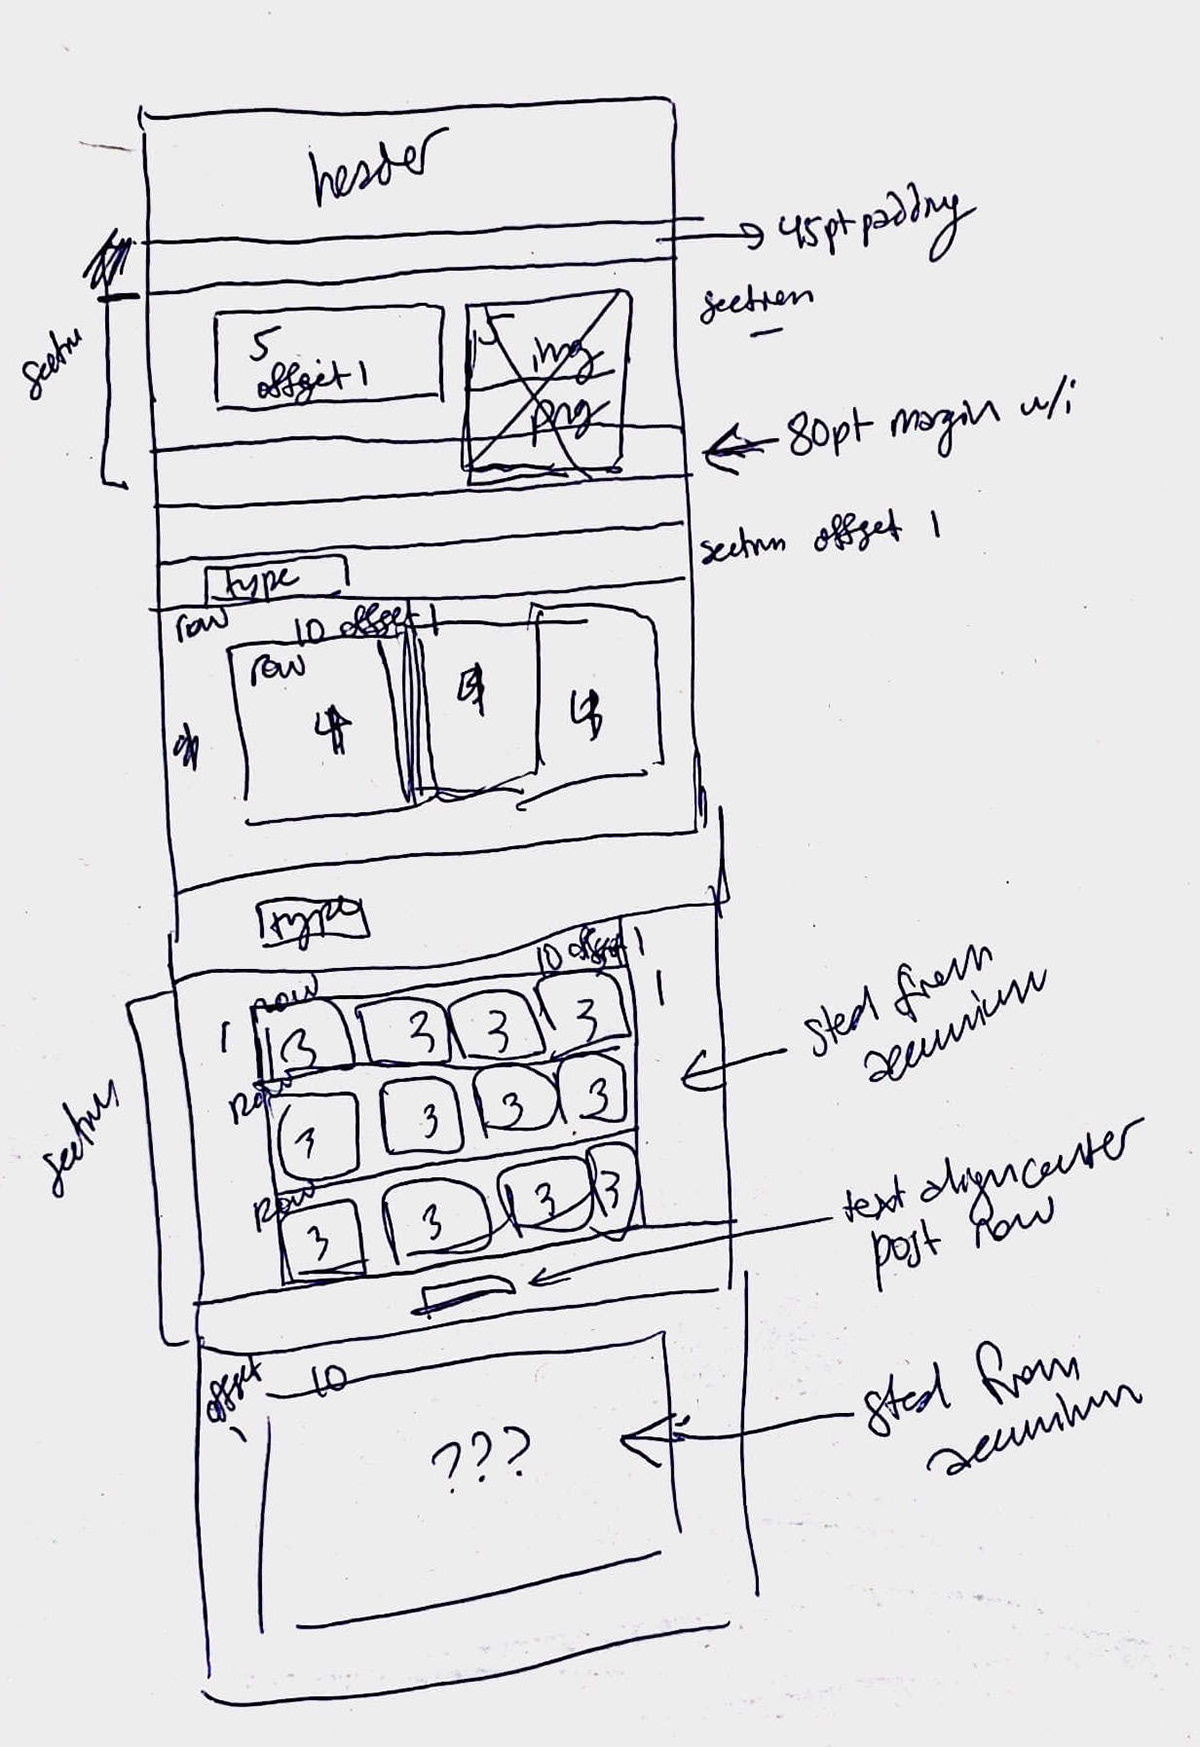 header
45pt padding
section
section
5
offset 1
5
img
png
80pt margin w/i
section offset 1
type
row
10 offset 1
row
4
4
4
type
10 offset 1
row
1
1
3 3 3 3
section
Row
3 3 3 3
Row
3 3 3 3
text align center
post row
offset
1
10
???
from